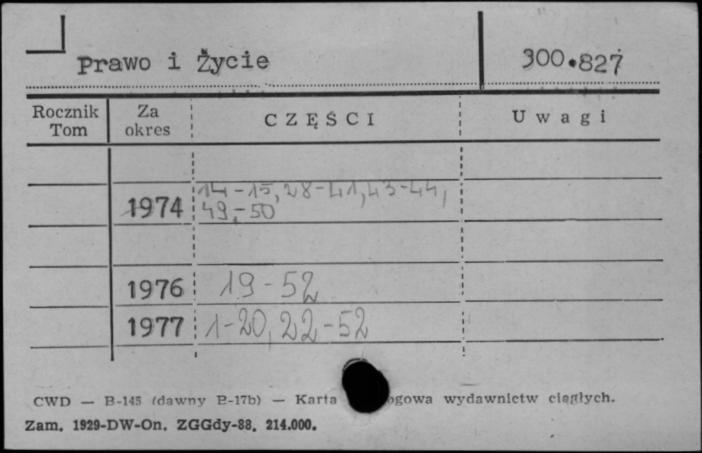 Prawo i Życie
300.827
Rocznik Tom
Za okres
CZĘŚCI
Uwagi
14-15, 28-41, 43-44,
1974 49-50
1976 19-52
1977 1-20, 22-52
CWD — B-145 (dawny B-17b) — Karta ogowa wydawnictw ciągłych.
Zam. 1929-DW-On. ZGGdy-88. 214.000.